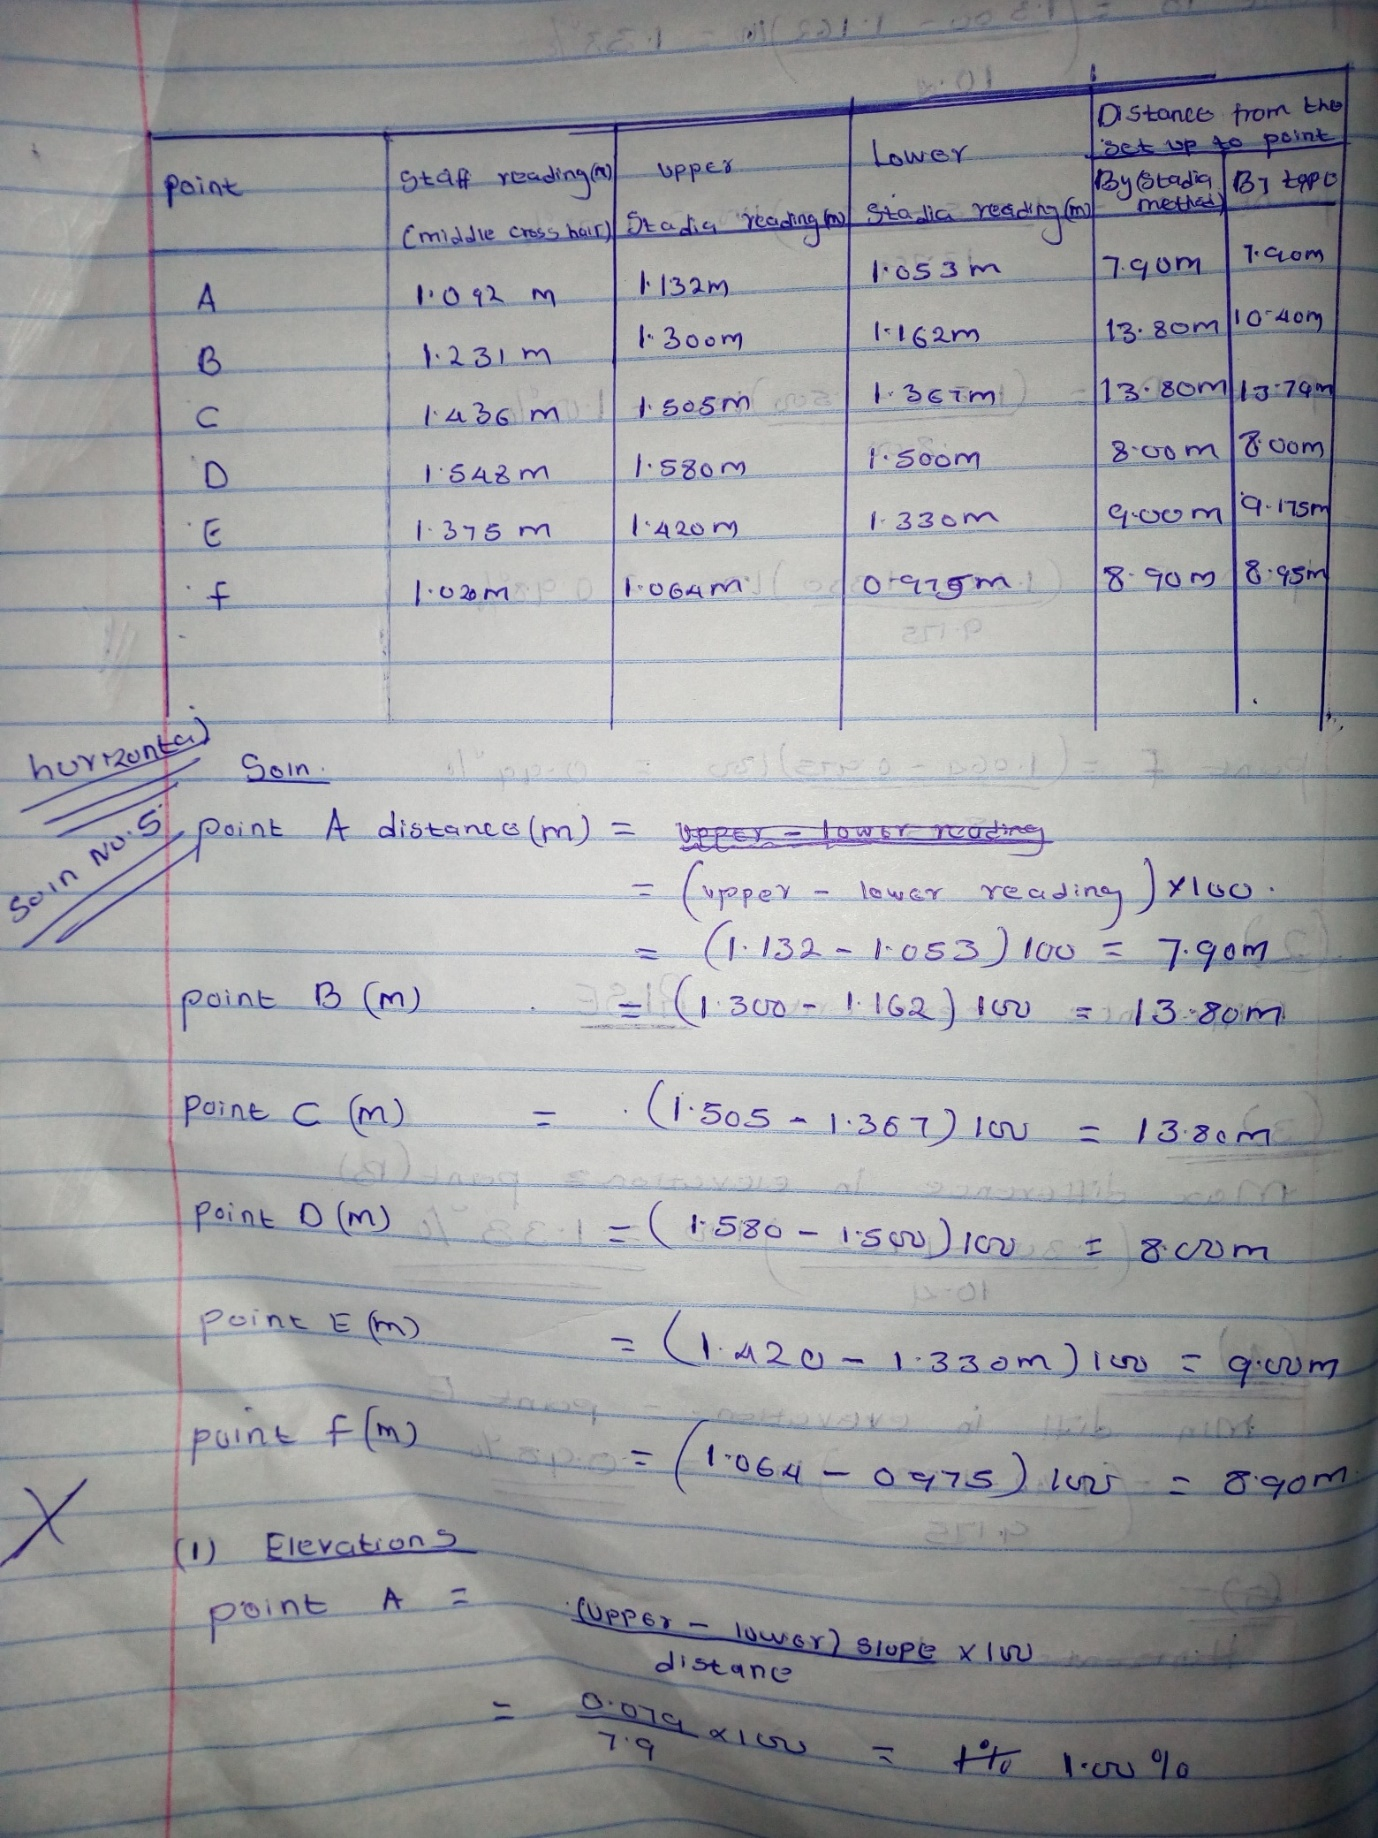 Distance from the
set up to point
Point
Staff reading(m)
(middle cross hair)
upper
Stadia reading(m)
Lower
Stadia reading(m)
By(Stadia
method)
By tape
A 1.092 m 1.132m 1.053m 7.90m 7.90m
B 1.231 m 1.300m 1.162m 13.80m 10.40m
C 1.436 m 1.505m 1.367m 13.80m 13.79m
D 1.548m 1.580m 1.500m 8.00m 8.00m
E 1.375 m 1.420m 1.330m 9.00m 9.175m
f 1.020m 1.064m 0.975m 8.90m 8.95m
horizontal
Soln.
Soln No.5
point A distance(m) = upper - lower reading
= (upper - lower reading) x100.
= (1.132 - 1.053) 100 = 7.90m
point B (m) = (1.300 - 1.162) 100 = 13.80m
point C (m) = (1.505 - 1.367) 100 = 13.80m
point D (m) = (1.580 - 1.500) 100 = 8.00m
point E (m) = (1.420 - 1.330m) 100 = 9.00m
point f (m) = (1.064 - 0.975) 100 = 8.90m
X
(1) Elevations
point A = (upper - lower) slope x 100
distane
= 0.079 x 100 = 1% 1.00%
7.9